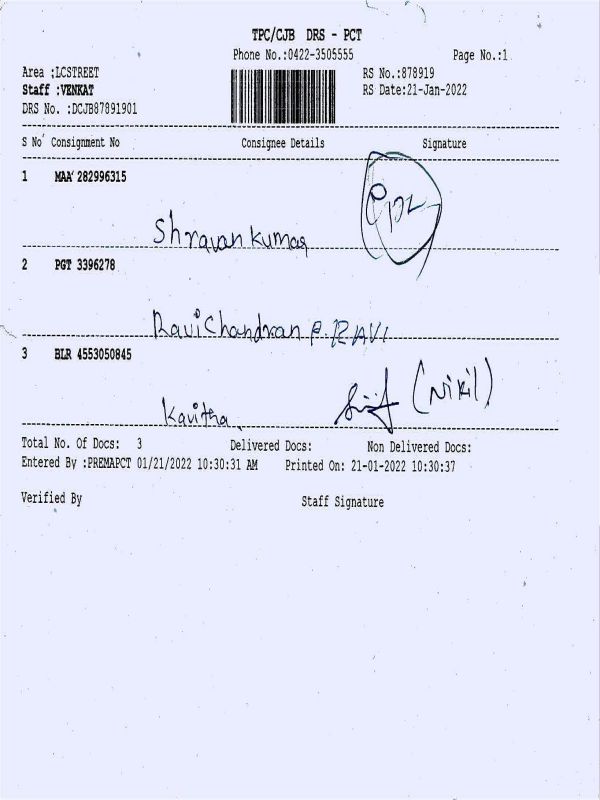 TPC/CJB DRS - PCT
Phone No.:0422-3505555 Page No.:1
Area :LCSTREET RS No.:878919
Staff :VENKAT RS Date:21-Jan-2022
DRS No. :DCJB87891901
S No Consignment No Consignee Details Signature
1 MAA 282996315
Shravan kumar
2 PGT 3396278
RaviChandran P. RAVI
3 BLR 4553050845
Kavitha (Nikil)
Total No. Of Docs: 3 Delivered Docs: Non Delivered Docs:
Entered By :PREMAPCT 01/21/2022 10:30:31 AM Printed On: 21-01-2022 10:30:37
Verified By Staff Signature